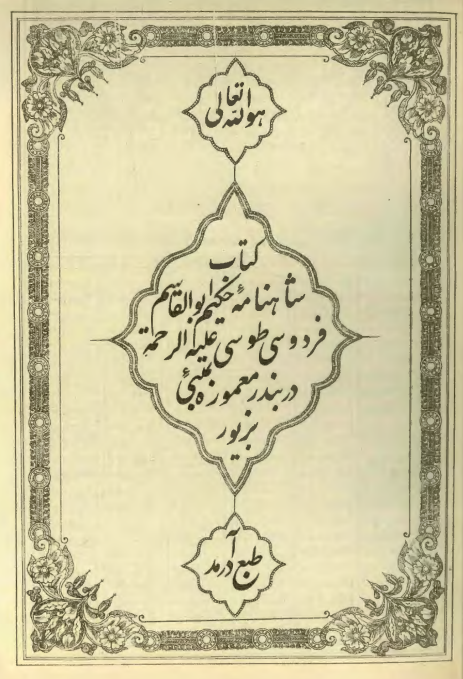 هوالله تعالی
کتاب
شاهنامهٔ حکیم ابوالقاسم
فردوسی طوسی علیه الرحمة
در بندر معمورهٔ بمبئی
بزیور
طبع درآمد